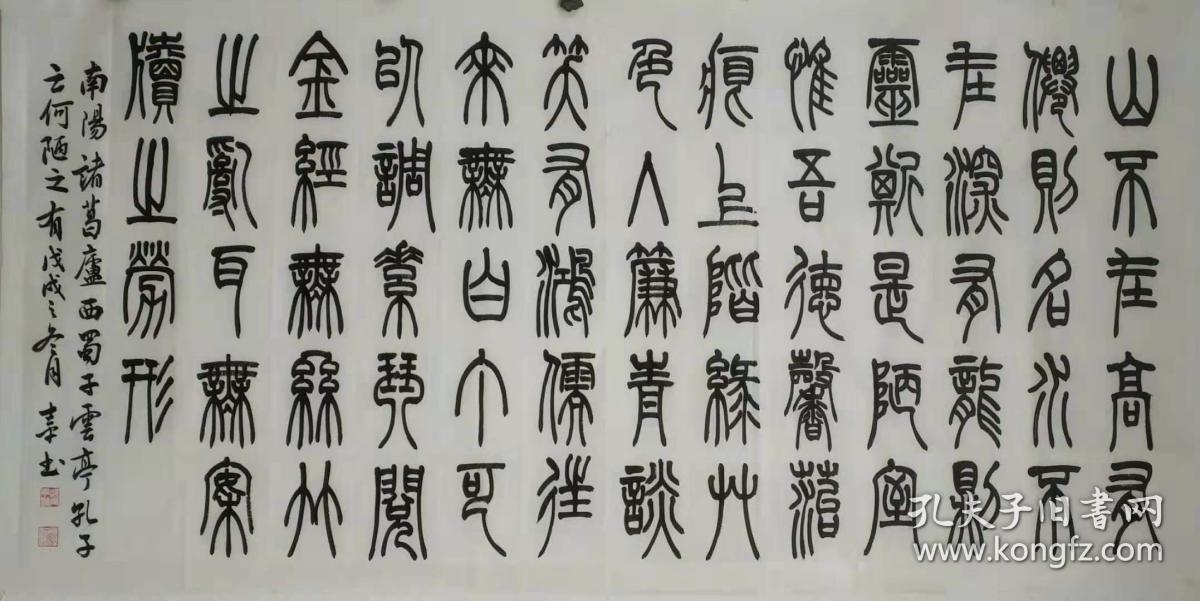 山不在高有
僊則名水不
在深有龍則
靈斯是陋室
惟吾德馨菭
痕上階綠艸
色入簾青談
笑有鴻儒往
來無白丁可
以調素琴閱
金經無絲竹
之亂耳無案
牘之勞形
南陽諸葛廬西蜀子雲亭孔子
云何陋之有戊戌之冬月書
孔夫子旧书网
www.kongfz.com